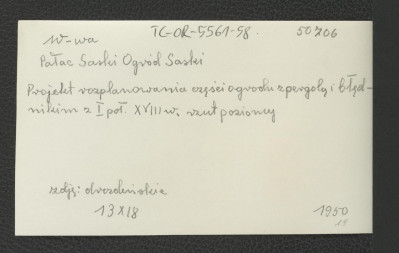 W-wa TC-OR-5561-58. 50706
Pałac Saski Ogród Saski
Projekt rozplanowania części ogrodu z pergolą i błęd-
nikiem z I poł. XVIII w. rzut poziomy
zdję: drezdeńskie
13 X 18 1950